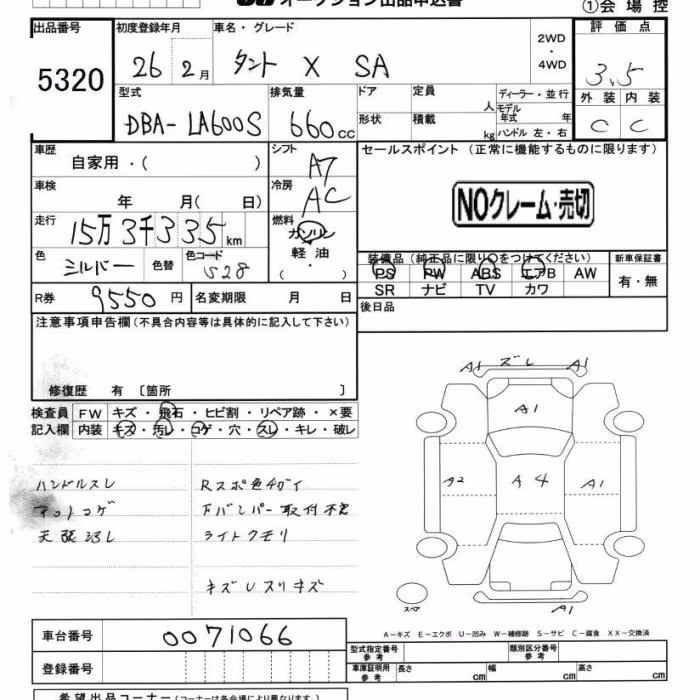 オークション出品申込書 ①会場控
出品番号 初度登録年月 車名・グレード 2WD・4WD 評価点
5320 26年2月 タント X SA 3.5
型式 排気量 ドア 定員 人 ディーラー・並行 外装 内装
DBA-LA600S 660cc 形状 積載 kg モデル年式 年 C C
ハンドル 左・右
車歴 自家用・( ) シフト AT セールスポイント（正常に機能するものに限ります）
車検 年 月( 日) 冷房 AC
NOクレーム・売切
走行 15万3千335km 燃料 ガソリン
軽油
( ・ )
色 シルバー 色替 色コード S28
装備品（純正品に限り○をつけてください） 新車保証書
PS PW ABS エアB AW 有・無
SR ナビ TV カワ
R券 9550円 名変期限 月 日 後日品
注意事項申告欄(不具合内容等は具体的に記入して下さい)
修復歴 有 〔箇所 〕
検査員 FW キズ・飛石・ヒビ割・リペア跡・×要
記入欄 内装 キズ・汚レ・コゲ・穴・スレ・キレ・破レ
ハンドルスレ Rスポ色チガイ
マットコゲ
下バンパー取付不良
天張ヨゴレ ライトクモリ
キズ
スリキズ
A1 ズレ A1
A1
A2 A4 A1
A1
スペア
A-キズ E-エクボ U-凹み W-補修跡 S-サビ C-腐食 XX-交換済
車台番号 0071066 型式指定番号 参考 類別区分番号 参考
登録番号 車庫証明用 参考 長さ cm 幅 cm 高さ cm
希望出品コーナー(コーナーは各会場により異なります。)